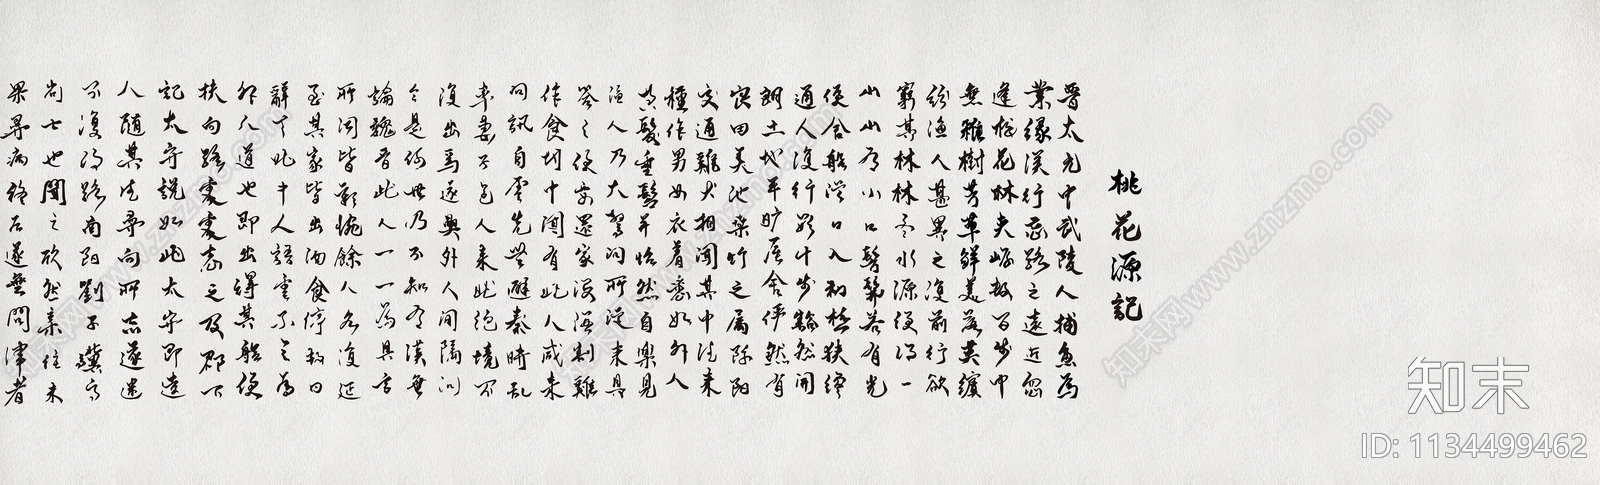 桃花源記
晋太元中武陵人捕魚為
業缘溪行忘路之遠近忽
逢桃花林夹岸数百步中
無雜樹芳草鮮美落英繽
紛漁人甚異之復前行欲
窮其林林盡水源便得一
山山有小口髣髴若有光
便舍船從口入初極狹纔
通人復行數十步豁然開
朗土地平曠屋舍儼然有
良田美池桑竹之属阡陌
交通雞犬相聞其中往来
種作男女衣着悉如外人
黄髮垂髫并怡然自樂見
漁人乃大驚問所從来具
答之便要還家設酒制雞
作食村中聞有此人咸来
問訊自雲先世避秦時乱
率妻子邑人来此绝境不
復出焉遂與外人間隔問
今是何世乃不知有漢無
論魏晋此人一一為具言
所聞皆歎惋餘人各復延
至其家皆出酒食停数日
辭去此中人語雲不足為
外人道也即出得其船便
扶向路處處志之及郡下
記太守說如此太守即遣
人隨其往尋向所志遂迷
不復得路南陽劉子驥高
尚士也聞之欣然亲往未
果尋病終后遂無問津者
知末
ID: 1134499462
知末网www.znzmo.com